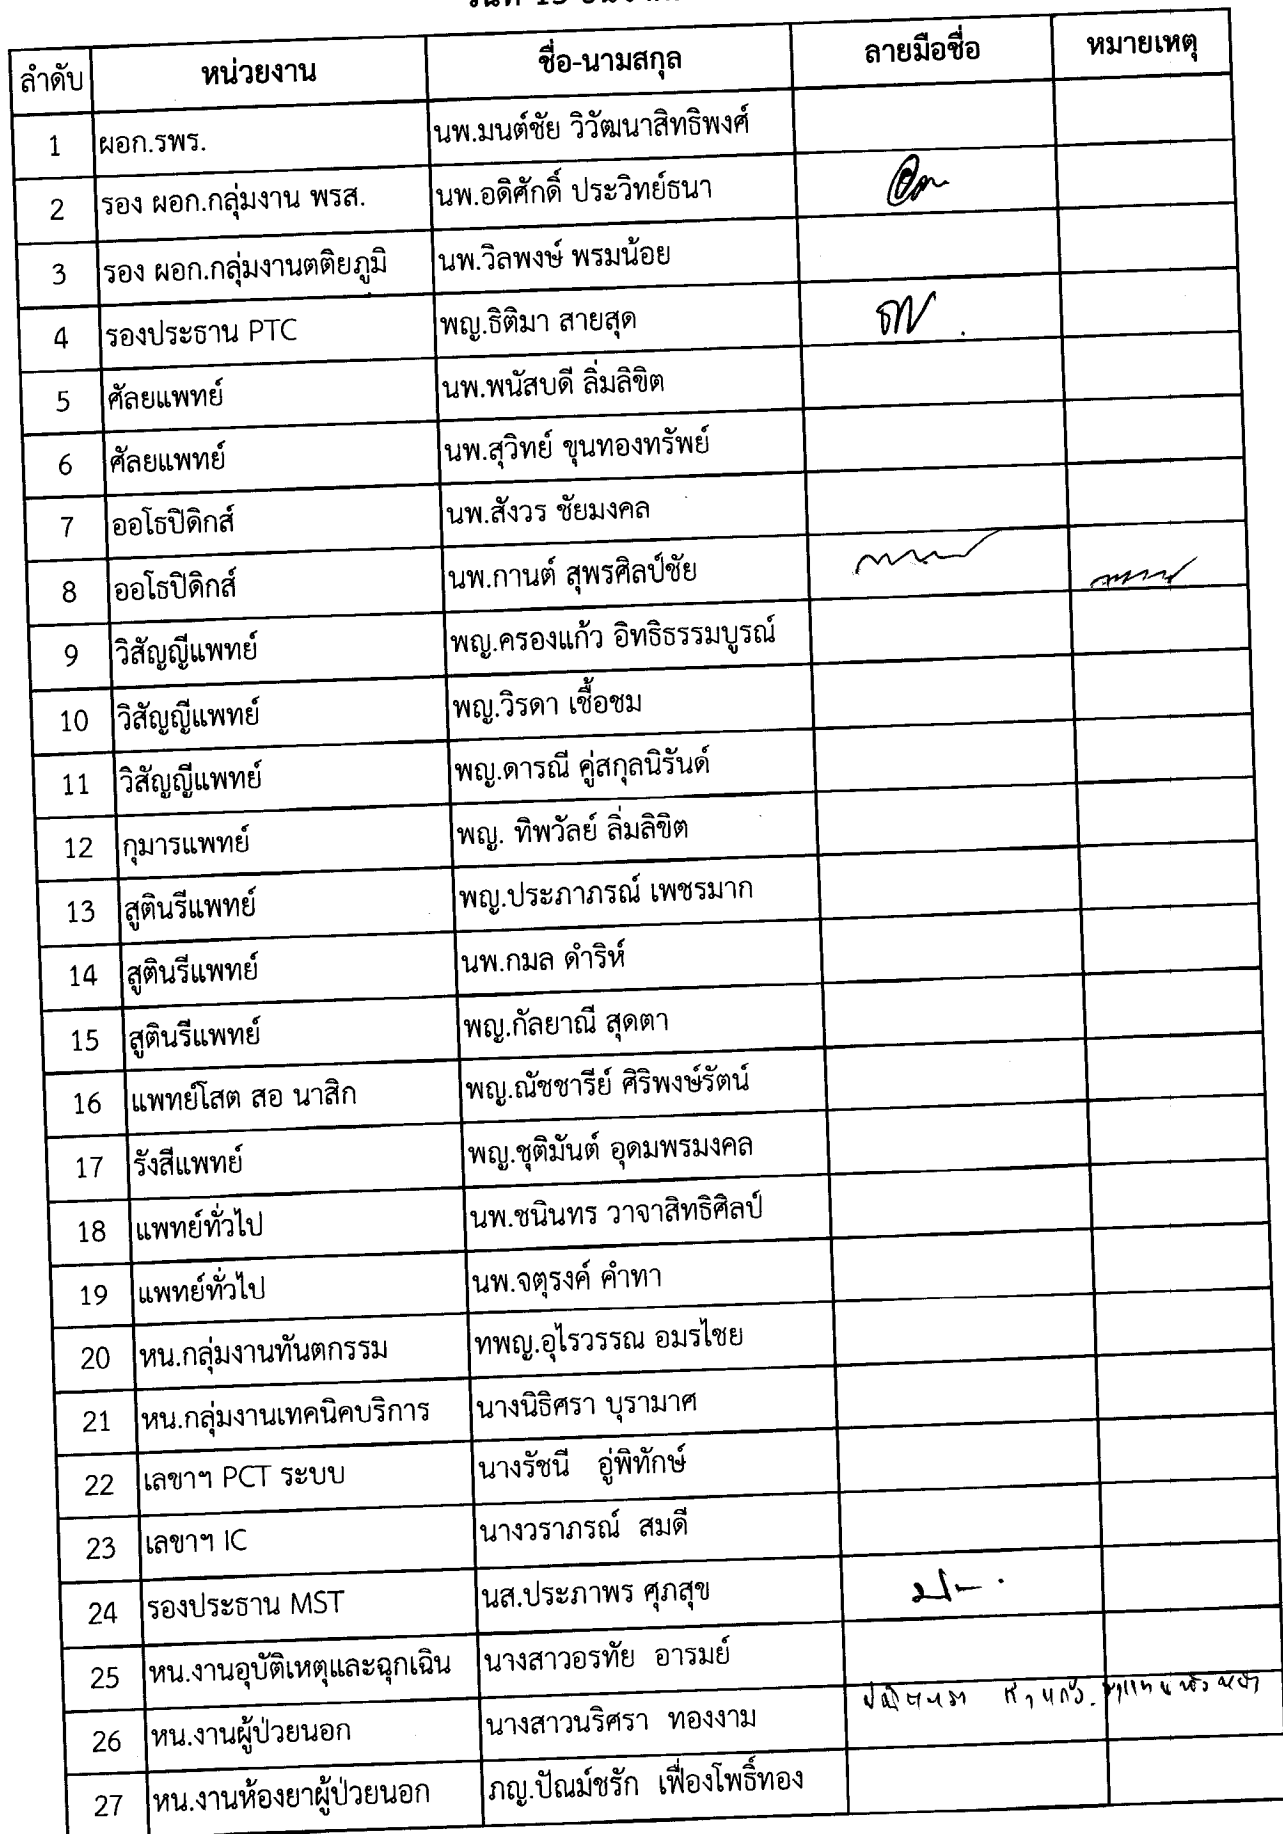 วันที่ 13
ลำดับ หน่วยงาน ชื่อ-นามสกุล ลายมือชื่อ หมายเหตุ
1 ผอก.รพร. นพ.มนต์ชัย วิวัฒนาสิทธิพงศ์
2 รอง ผอก.กลุ่มงาน พรส. นพ.อดิศักดิ์ ประวิทย์ธนา
3 รอง ผอก.กลุ่มงานตติยภูมิ นพ.วิลพงษ์ พรมน้อย
4 รองประธาน PTC พญ.ธิติมา สายสุด
5 ศัลยแพทย์ นพ.พนัสบดี ลิ่มลิขิต
6 ศัลยแพทย์ นพ.สุวิทย์ ขุนทองทรัพย์
7 ออโธปิดิกส์ นพ.สังวร ชัยมงคล
8 ออโธปิดิกส์ นพ.กานต์ สุพรศิลป์ชัย
9 วิสัญญีแพทย์ พญ.ครองแก้ว อิทธิธรรมบูรณ์
10 วิสัญญีแพทย์ พญ.วิรดา เชื้อชม
11 วิสัญญีแพทย์ พญ.ดารณี คู่สกุลนิรันด์
12 กุมารแพทย์ พญ. ทิพวัลย์ ลิ่มลิขิต
13 สูตินรีแพทย์ พญ.ประภาภรณ์ เพชรมาก
14 สูตินรีแพทย์ นพ.กมล ดำริห์
15 สูตินรีแพทย์ พญ.กัลยาณี สุดตา
16 แพทย์โสต สอ นาสิก พญ.ณัชชารีย์ ศิริพงษ์รัตน์
17 รังสีแพทย์ พญ.ชุติมันต์ อุดมพรมงคล
18 แพทย์ทั่วไป นพ.ชนินทร วาจาสิทธิศิลป์
19 แพทย์ทั่วไป นพ.จตุรงค์ คำทา
20 หน.กลุ่มงานทันตกรรม ทพญ.อุไรวรรณ อมรไชย
21 หน.กลุ่มงานเทคนิคบริการ นางนิธิศรา บุรามาศ
22 เลขาฯ PCT ระบบ นางรัชนี อู่พิทักษ์
23 เลขาฯ IC นางวราภรณ์ สมดี
24 รองประธาน MST นส.ประภาพร ศุภสุข
25 หน.งานอุบัติเหตุและฉุกเฉิน นางสาวอรทัย อารมย์
26 หน.งานผู้ป่วยนอก นางสาวนริศรา ทองงาม
27 หน.งานห้องยาผู้ป่วยนอก ภญ.ปัณม์ชรัก เฟื่องโพธิ์ทอง